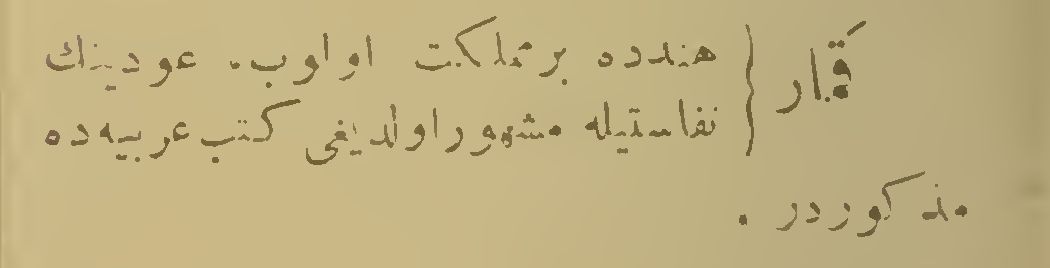 قمار { هندده برمملكت اولوب. عودینك
نفاستیله مشهور اولدیغی كتب عربیه ده
مذكوردر .